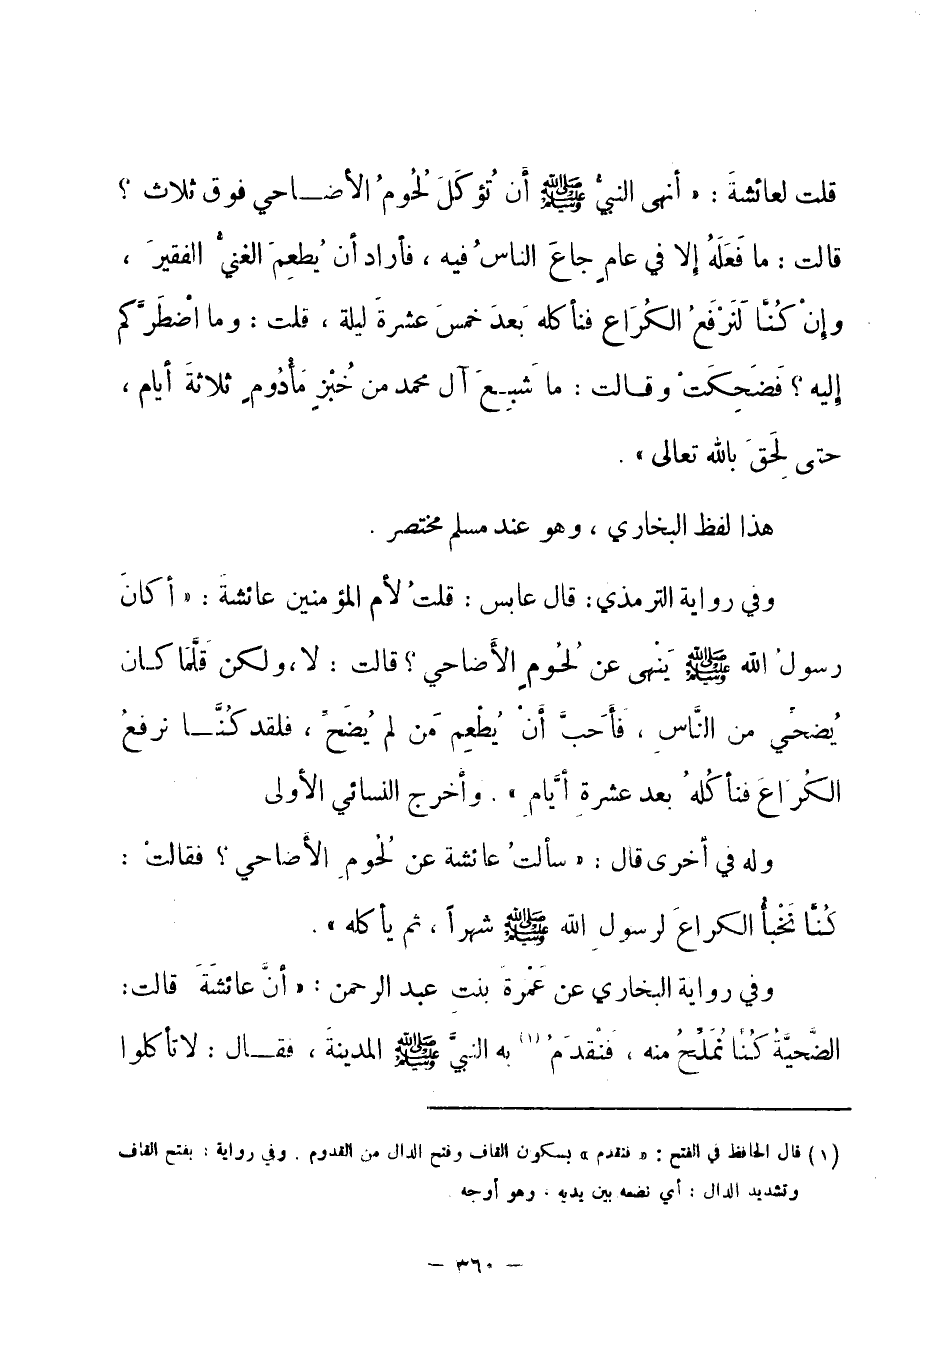 قلت لعائشةَ : « أنهى النبيُّ ﷺ أن تُؤكَلَ لُحُومُ الأضـاحي فوق ثلاث ؟
قالت : ما فَعَلَهُ إلا في عامٍ جاعَ الناسُ فيه ، فأراد أن يُطعِمَ الغنيُّ الفقيرَ ،
وإنْ كُنَّا لَنَرْفَعُ الكُرَاع فنأكله بَعدَ خمسَ عشرةَ ليلة ، قلت : وما اضْطَرَّكم
إليه ؟ فَضَحِكَتْ وقـالت : ما شَبِـعَ آل محمد من خُبْزٍ مَأْدُومٍ ثلاثةَ أيام ،
حتى لَحِقَ بالله تعالى » .
هذا لفظ البخاري ، وهو عند مسلم مختصر .
وفي رواية الترمذي : قال عابس : قلتُ لأم المؤمنين عائشةَ : « أكانَ
رسولُ الله ﷺ يَنْهى عن لُحُومِ الأَضاحي ؟ قالت : لا ، ولكن قَلَّمَا كـان
يُضحِّي من النَّاسِ ، فأَحَبَّ أَنْ يُطْعِم مَن لم يُضَحِّ ، فلقد كُنَّـا نرفعُ
الكُرَاعَ فنأكُلهُ بعد عشرةِ أيَّامٍ » . وأخرج النسائي الأولى
وله في أخرى قال : « سألتُ عائشة عن لُحُومِ الأضَاحي ؟ فقالتْ :
كُنَّا نَخْبأُ الكراعَ لرسولِ الله ﷺ شهراً ، ثم يأكله » .
وفي رواية البخاري عن عَمْرةَ بنتِ عبد الرحمن : « أنَّ عائشَةَ قالت :
الضَّحيَّةُ كُنَّا نُمَلِّحُ منه ، فَنْقدَمُ (١) به النبيَّ ﷺ المدينةَ ، فقـال : لا تأكلوا
(١) قال الحافظ في الفتح : « فنقدم » بسكون القاف وفتح الدال من القدوم . وفي رواية : بفتح القاف
وتشديد الدال : أي نضعه بين يديه ، وهو أوجه .
– ٣٦٠ –